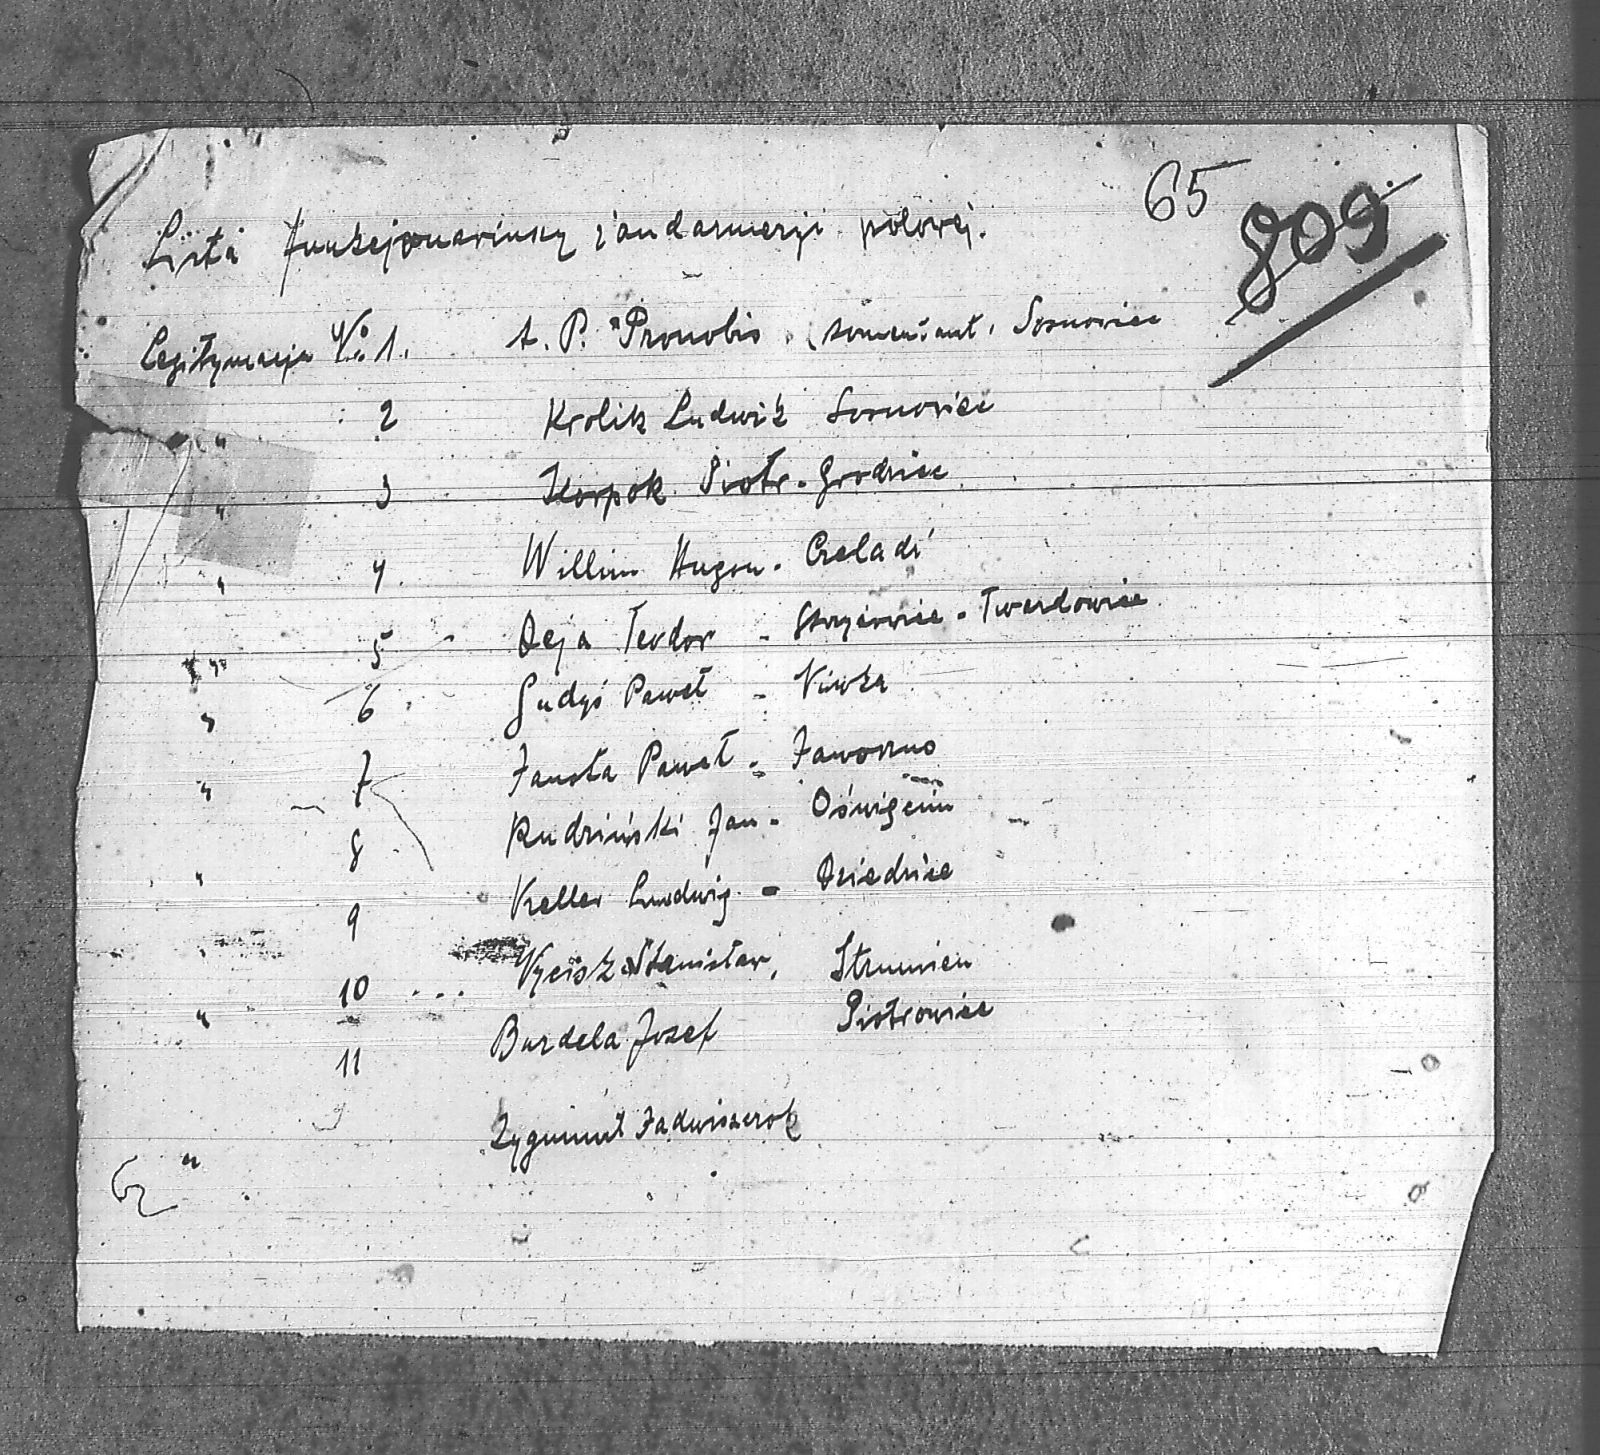 65
809
Lista funkcjonariuszy żandarmerji polowej.
Legitymacja No 1. A. P. Pronobis. (komendant, Sosnowiec
" 2 Krolik Ludwik Sosnowiec
" 3 Piotr. Grodziec
" 4. Willim Hugon. Czeladź
" 5 Deja Teodor - Strzyżowice - Twardowice
" 6. Gudyś Paweł - Niwka
" 7 Paweł - Jaworzno
" 8. Rudziński Jan - Oświęcim
" 9 Keller Ludwig - Dziedzice
" 10 ... Wycisz Stanisław, Strumien
11 Burdela Jozef Piotrowice
" Zygmunt